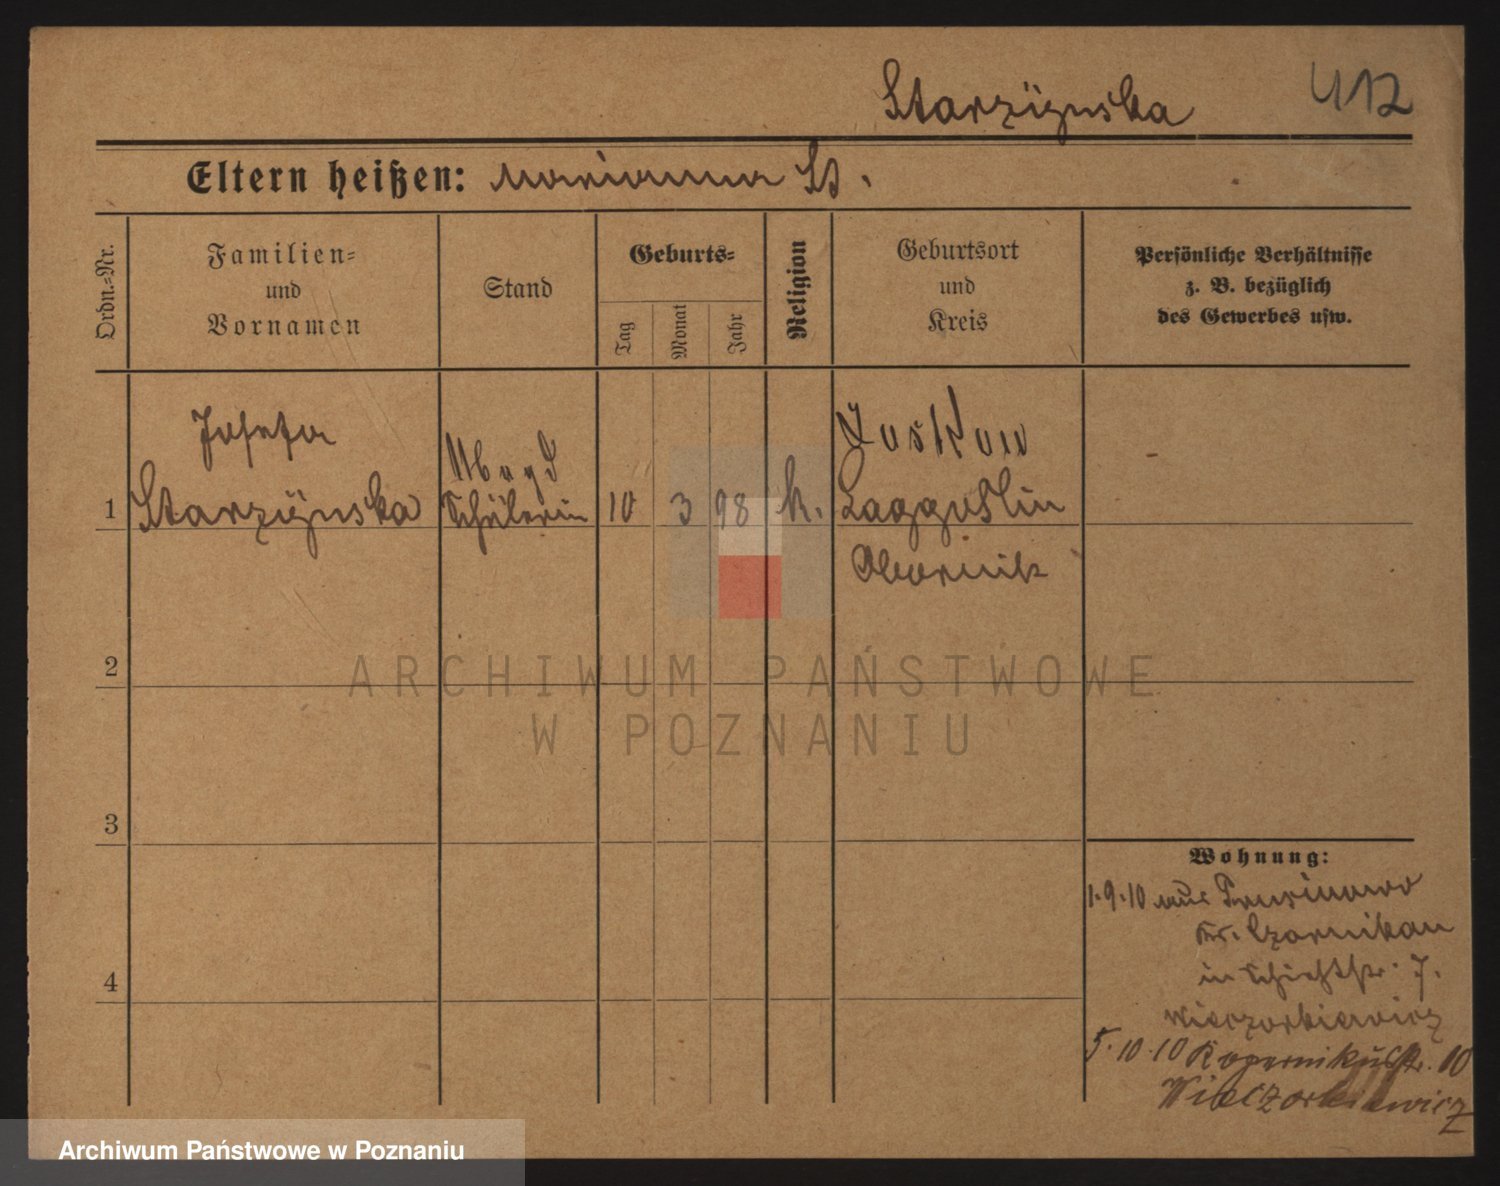 Starzÿnska 412
Eltern heißen: Marianna St.
Ordn.-Nr.
Familien-
und
Vornamen
Stand
Geburts-
Tag
Monat
Jahr
Religion
Geburtsort
und
Kreis
Persönliche Verhältnisse
z. B. bezüglich
des Gewerbes usw.
Josefa
Starzÿnska
Magd
Schülerin
1
10 3 98 k.
Obornik
2
3
4
Wohnung:
1.9.10 aus Prusinowo
Kr. Czarnikau
in 7.
Wieczorkiewicz
5.10.10 Kopernikusstr. 10
Wieczorkiewicz
ARCHIWUM PAŃSTWOWE
W POZNANIU
Archiwum Państwowe w Poznaniu